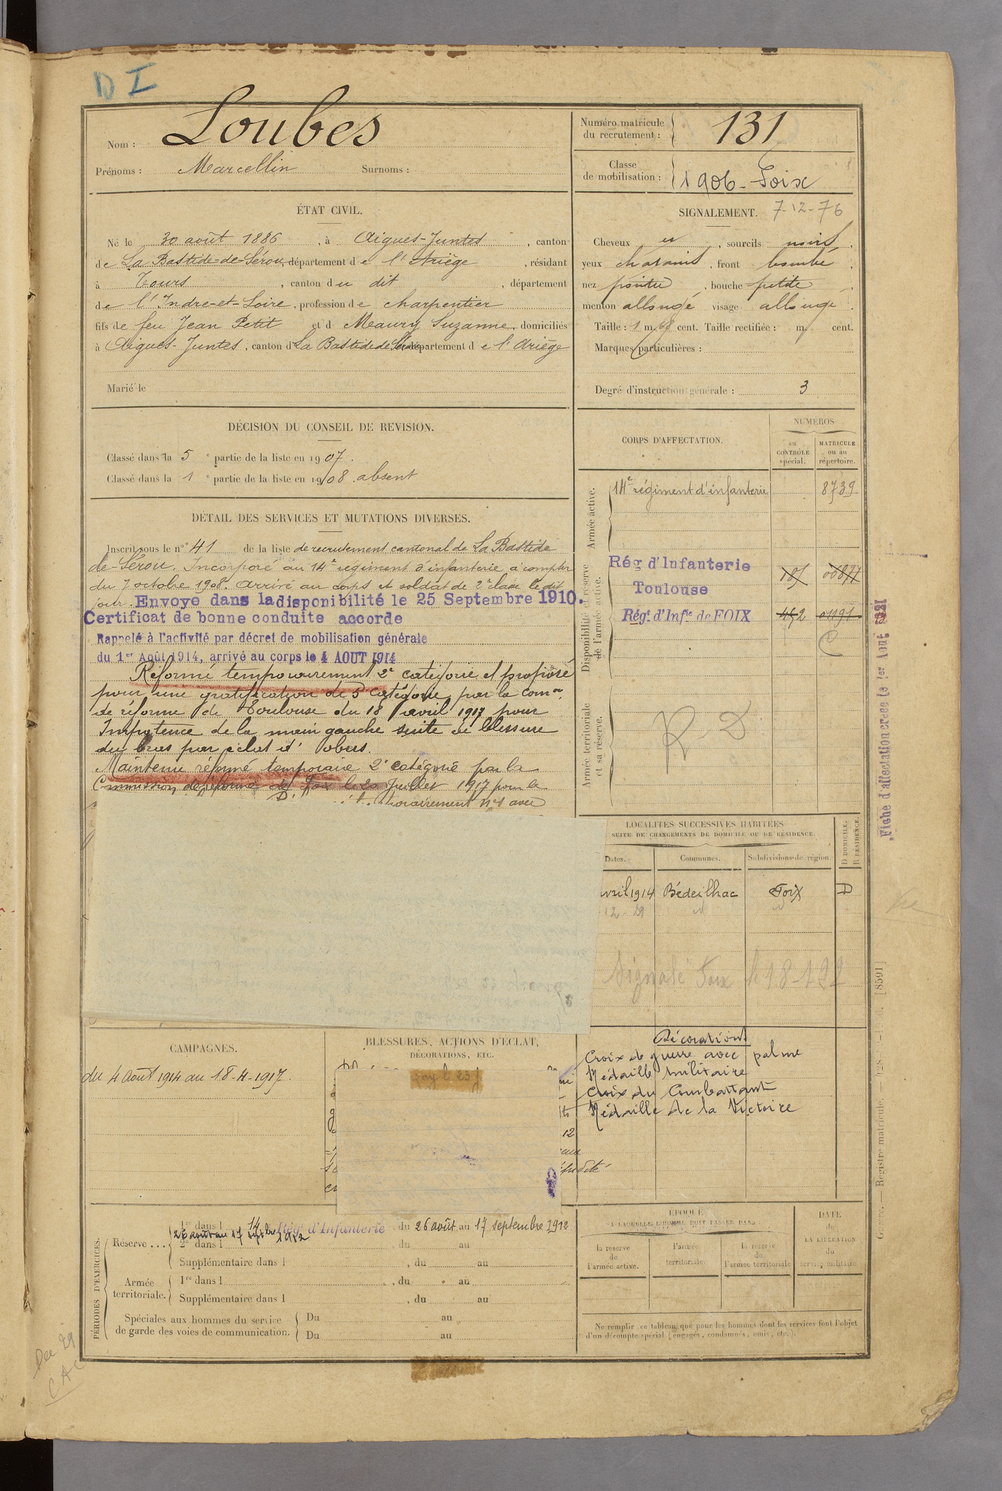 D I
Nom : Loubes
Prénoms : Marcellin Surnoms :
Numéro matricule du recrutement : 131
Classe de mobilisation : 1906 - Foix
ÉTAT CIVIL.
Né le 30 août 1886, à Aigues-Juntes, canton
de La Bastide-de-Sérou, département de l'Ariège, résidant
à Tours, canton du dit, département
de l'Indre-et-Loire, profession de charpentier
fils de feu Jean Petit et d Maury Suzanne, domiciliés
à Aigues-Juntes, canton d La Bastide de Sérou département de l'Ariège
Marié le
SIGNALEMENT. 7-12-76
Cheveux et, sourcils noirs,
yeux chatains, front bombé,
nez pointu, bouche petite,
menton allongé visage allongé.
Taille : 1 m. cent. Taille rectifiée : m. cent.
Marques particulières :
Degré d'instruction générale : 3
DÉCISION DU CONSEIL DE REVISION.
Classé dans la 5e partie de la liste en 1907.
Classé dans la 1e partie de la liste en 1908. absent
CORPS D'AFFECTATION.
NUMÉROS
AU CONTRÔLE spécial.
MATRICULE ou au répertoire.
Armée active.
14e régiment d'infanterie 8739
Disponibilité et réserve de l'armée active.
Rég d'Infanterie
Toulouse
Rég.t d'Inf.ie de FOIX
C
Armée territoriale et sa réserve.
R D
DÉTAIL DES SERVICES ET MUTATIONS DIVERSES.
Inscrit sous le n° 41 de la liste de recrutement cantonal de La Bastide
de-Sérou. Incorporé au 14e régiment d'infanterie à compter
du 7 octobre 1908. arrivé au corps et soldat de 2e classe le dit
jour. Envoyé dans la disponibilité le 25 Septembre 1910.
Certificat de bonne conduite accorde
Rappelé à l'activité par décret de mobilisation générale
du 1er Août 1914, arrivé au corps le 4 AOUT 1914
Réformé temporairement 2e catégorie et proposé
pour une gratification de 5e catégorie par la com.on
de réforme de Toulouse du 18 avril 1917 pour
Impotence de la main gauche suite de blessure
du bras par éclat d'obus.
Maintenu réformé temporaire 2e catégorie par la
Commission de réforme de Foix le 20 Juillet 1917 pour la
LOCALITÉS SUCCESSIVES HABITÉES
SUITE DE CHANGEMENTS DE DOMICILE OU DE RÉSIDENCE.
Dates. Communes. Subdivisions de région. D. DOMICILE. R. RÉSIDENCE.
avril 1914 Bédeilhac Foix D
Signalé Foix le 18-12
Fiche d'affectation créée le 1er Août
CAMPAGNES.
du 4 août 1914 au 18-4-1917.
BLESSURES, ACTIONS D'ÉCLAT,
DÉCORATIONS, ETC.
Décorations
Croix de guerre avec palme
Médaille militaire
Croix du Combattant
Médaille de la Victoire
PÉRIODES D'EXERCICES.
Réserve ....
1re dans l 14 Rég. d'Infanterie du 26 août au 17 septembre 1912
2e dans l, du au
Supplémentaire dans l, du au
Armée territoriale.
1re dans l, du au
Supplémentaire dans l, du au
Spéciales aux hommes du service de garde des voies de communication.
Du au
Du au
ÉPOQUE
la réserve de l'armée active.
l'armée territoriale.
la réserve de l'armée territoriale
DATE de LA LIBÉRATION du service militaire
Ne remplir ce tableau que pour les hommes dont les services font l'objet
d'un décompte spécial (engagés, condamnés, omis, etc.).